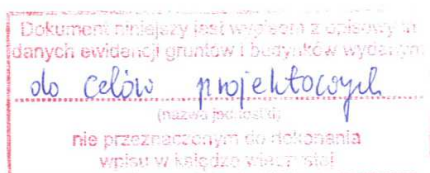 Dokument niniejszy jest wypisem z opisowych
danych ewidencji gruntów i budynków wydanym
do celów projektowych
(nazwa jednostki)
nie przeznaczonym do dokonania
wpisu w księdze wieczystej